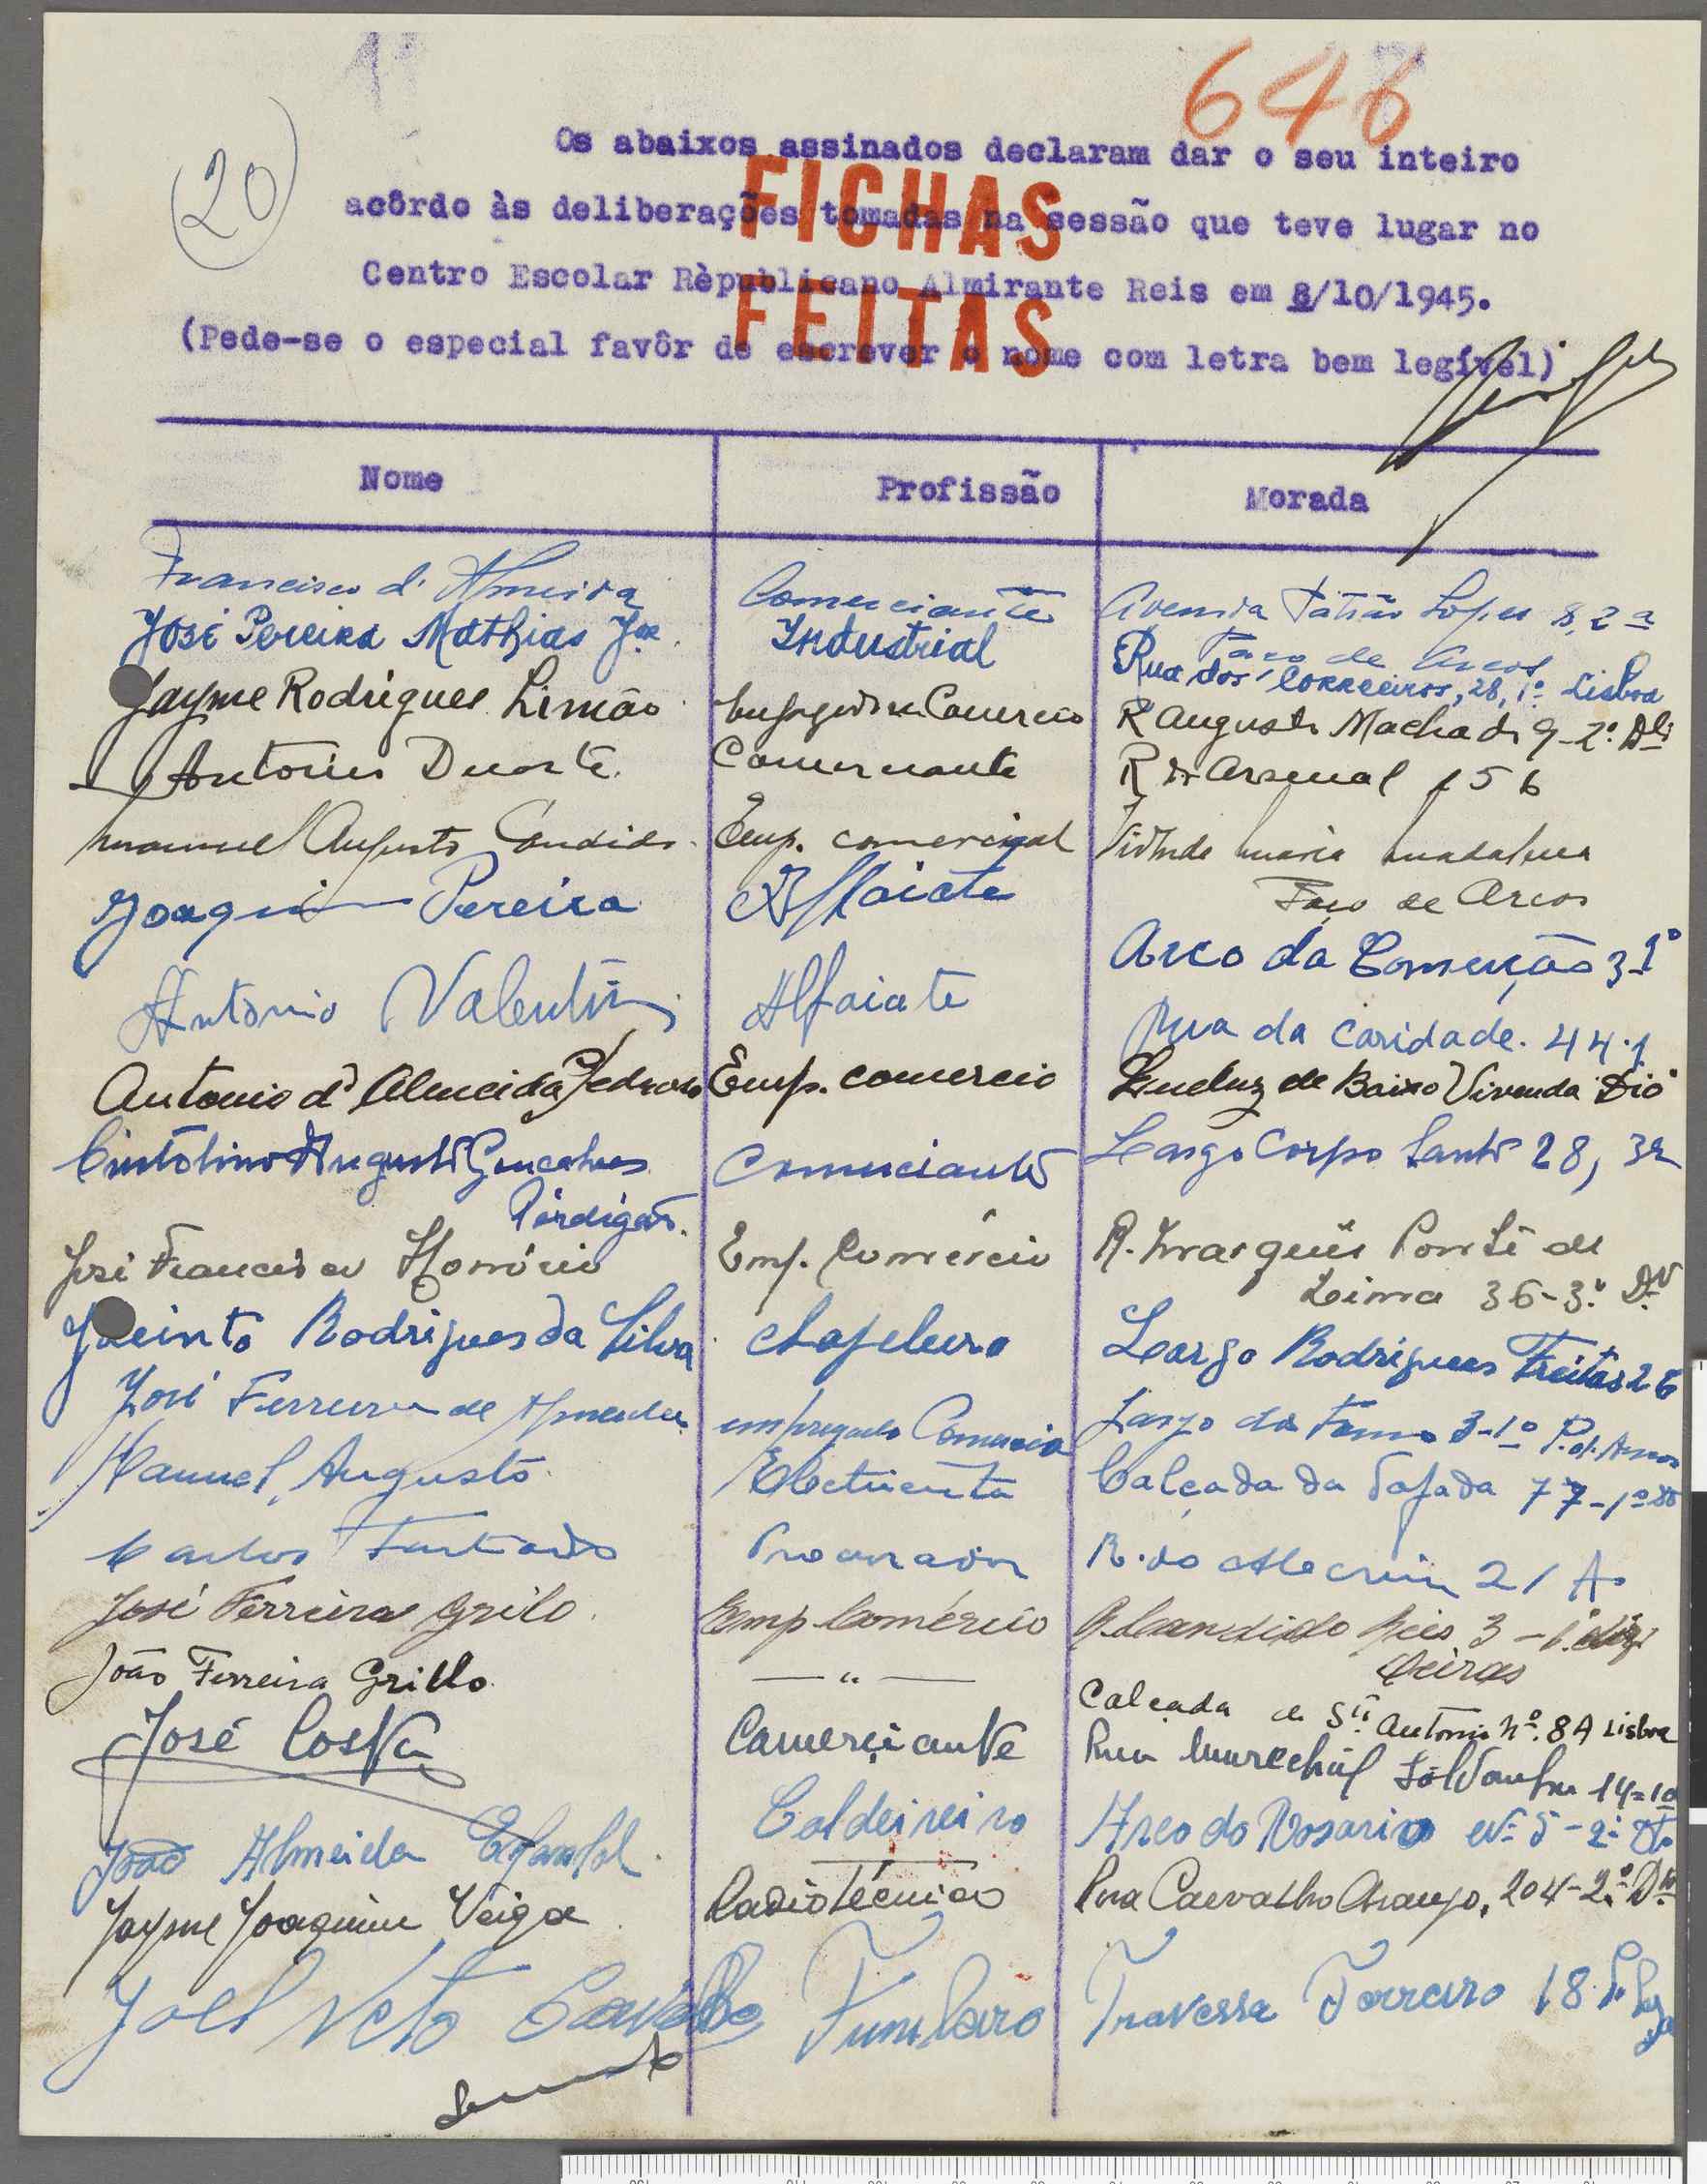 646
(20)
Os abaixos assinados declaram dar o seu inteiro
acôrdo às deliberações tomadas na sessão que teve lugar no
Centro Escolar Rèpublicano Almirante Reis em 8/10/1945.
(Pede-se o especial favôr de escrever o nome com letra bem legível)
FICHAS
FEITAS
Nome Profissão Morada
Francisco d'Almeida Comerciante Avenida Patrão Lopes 8, 2º
Paço de Arcos
José Pereira Mathias Jor. Industrial Rua dos Correeiros, 28, 1º Lisboa
Jayme Rodrigues Limão Empregado no Comercio R Augusto Machado 9-2º Dto
Antonio Duarte. Comerciante R do Arsenal 156
Manuel Augusto Candido. Emp. comercial Vivenda Maria Madalena
Paço de Arcos
Joaquim Pereira Alfaiate Arco da Conceição 3-1º
António Valentim Alfaiate Rua da Caridade. 44.1
Antonio d'Almeida Pedroso Emp. comercio Queluz de Baixo Vivenda Dió
Augusto Gonçalves Comerciante Largo Corpo Santo 28, 3º
Perdigão.
José Francisco Honório Emp. Comércio R. Marquês Ponte de
Lima 36-3º Dto
Jacinto Rodrigues da Silva chapeleiro Largo Rodrigues Freitas 26
José Ferreira de Almeida empregado Comercio Largo da 3-1º P. d'Arcos
Manuel Augusto Electricista Calçada da Tapada 77-1º
Carlos Furtado Procurador R. do Alecrim 21 A
José Ferreira Grilo. Emp Comércio R. Candido Reis 3-1º
Oeiras
João Ferreira Grillo. — " — Calçada de Sto Antonio nº. 8A Lisboa
José Costa Comerciante Rua Marechal Saldanha 14=1º
João Almeida Caldeireiro Arco do Rosario Nº 5-2º Dto
Jayme Joaquim Veiga Radiotécnico Rua Carvalho Araujo, 204-2º Dto
Joel Neto Carvalho Funileiro Travessa Terreiro 18